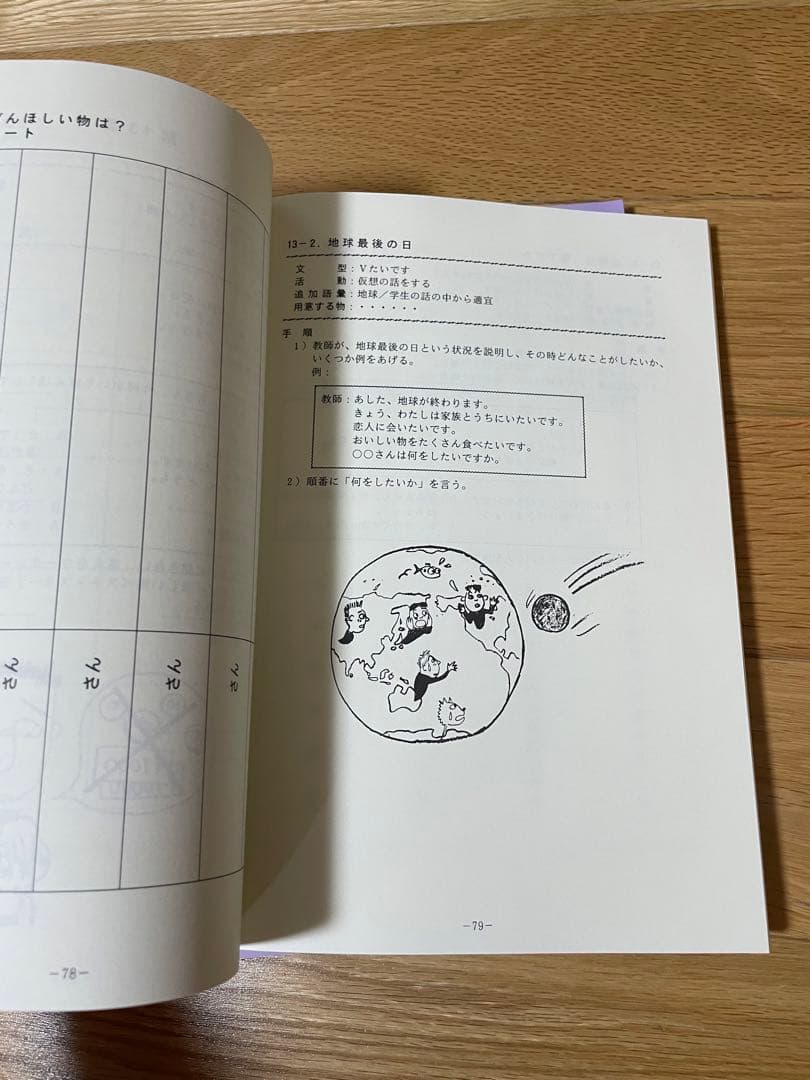 んほしい物は?
ート
さん
さん
さん
さん
−78−
13−2.地球最後の日
文型:Vたいです
活動:仮想の話をする
追加語彙:地球/学生の話の中から適宜
用意する物:・・・・・・
手順
1)教師が、地球最後の日という状況を説明し、その時どんなことがしたいか、
いくつか例をあげる。
例:
教師:あした、地球が終わります。
きょう、わたしは家族とうちにいたいです。
恋人に会いたいです。
おいしい物をたくさん食べたいです。
○○さんは何をしたいですか。
2)順番に「何をしたいか」を言う。
−79−